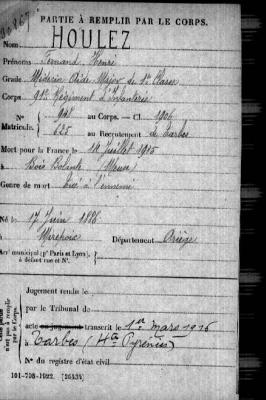 PARTIE À REMPLIR PAR LE CORPS.
Nom HOULEZ
Prénoms Fernand Henri
Grade Médecin Aide Major de 1re Classe
Corps 91e Régiment d'Infanterie
N° 948 au Corps. — Cl. 1906
Matricule. 625 au Recrutement de Tarbes
Mort pour la France le 14 Juillet 1915
à Bois Bolante (Meuse)
Genre de mort tué à l'ennemi
Né le 17 Juin 1886
à Mirepoix Département Ariège
Arr' municipal (pr Paris et Lyon),
à défaut rue et N°.
Jugement rendu le
par le Tribunal de
acte ou jugement transcrit le 1er mars 1916
à Tarbes (Htes Pyrénées)
N° du registre d'état civil
101-708-1922. [26434]